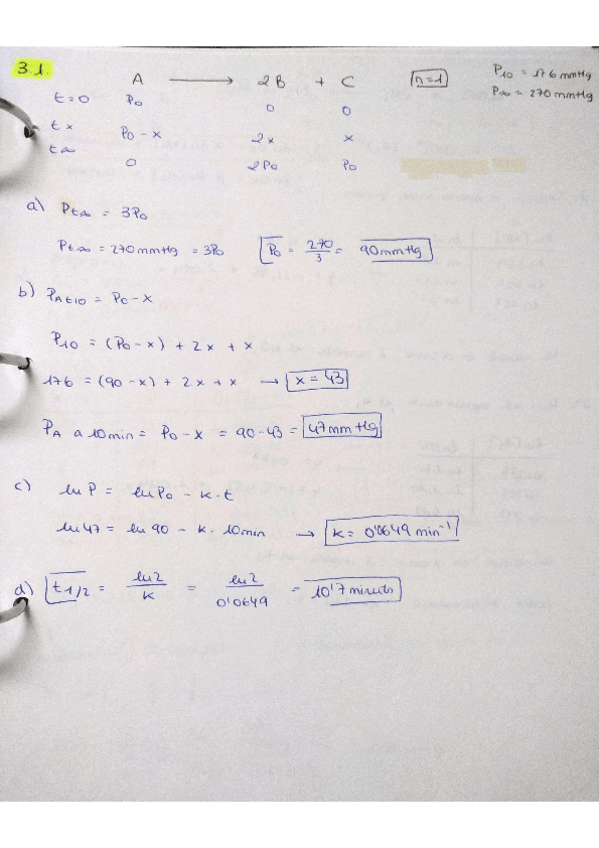 3.1.
A ⟶ 2B + C  n=1  P10 = 176 mmHg
P∞ = 270 mmHg
t=0  P0  0  0
tx  P0 - x  2x  x
t∞  0  2P0  P0
a) Pt∞ = 3P0
Pt∞ = 270 mmHg = 3P0  P0 = 270/3 = 90 mmHg
b) PAt10 = P0 - x
P10 = (P0 - x) + 2x + x
176 = (90 - x) + 2x + x → x = 43
PA a 10min = P0 - x = 90 - 43 = 47 mmHg
c) ln P = ln P0 - k · t
ln 47 = ln 90 - k · 10min → k = 0'0649 min⁻¹
d) t1/2 = ln2/k = ln2/0'0649 = 10'7 minuto